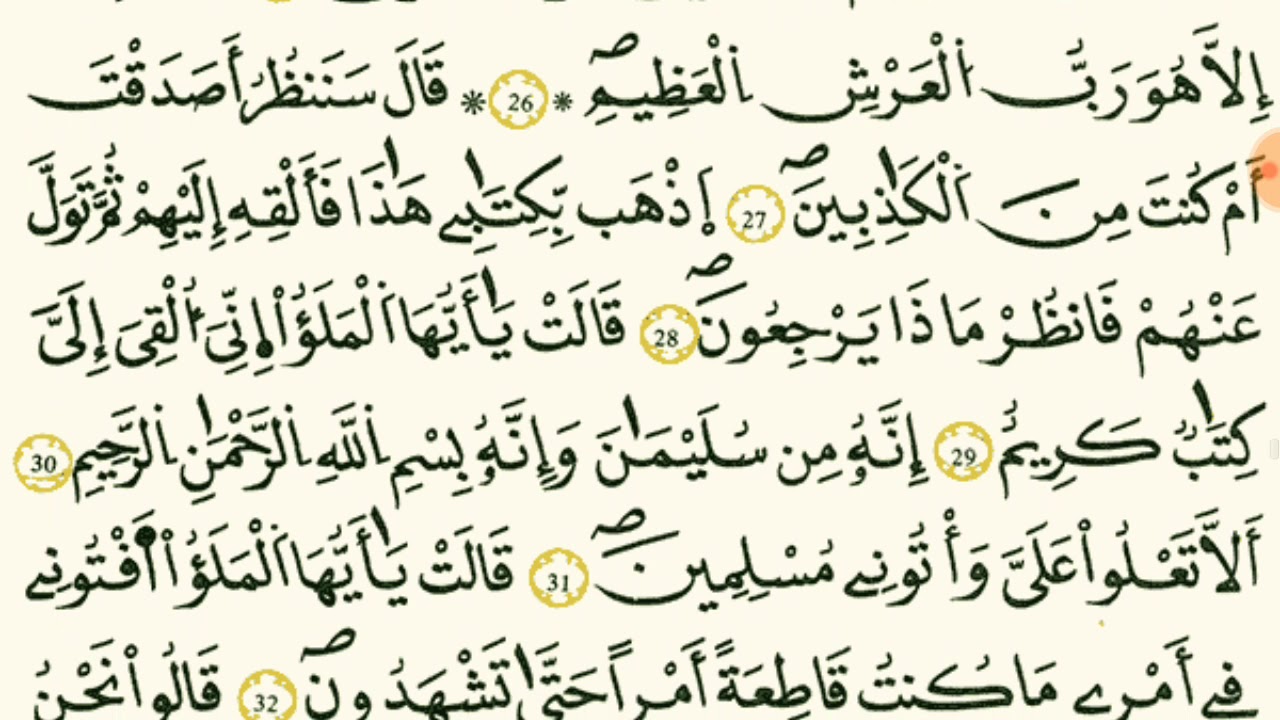 إِلاَّ هُوَ رَبُّ اُ۬لْعَرْشِ اِ۬لْعَظِيمِۖ 26 * قَالَ سَنَنظُرُ أَصَدَقْتَ
أَمْ كُنتَ مِنَ اَ۬لْكَٰذِبِينَۖ 27 اَ۪ذْهَب بِّكِتَٰبِے هَٰذَا فَأَلْقِهِۦ إِلَيْهِمْ ثُمَّ تَوَلَّ
عَنْهُمْ فَانظُرْ مَاذَا يَرْجِعُونَۖ 28 قَالَتْ يَٰأَيُّهَا اَ۬لْمَلَؤُاْ اِ۪نِّىَ أُلْقِىَ إِلَىَّ
كِتَٰبٌ كَرِيمٌ 29 إِنَّهُۥ مِن سُلَيْمَٰنَ وَإِنَّهُۥ بِسْمِ اِ۬للَّهِ اِ۬لرَّحْمَٰنِ اِ۬لرَّحِيمِ 30
أَلاَّ تَعْلُواْ عَلَىَّ وَأْتُونِے مُسْلِمِينَۖ 31 قَالَتْ يَٰأَيُّهَا اَ۬لْمَلَؤُاْ اَ۬فْتُونِے
فِے أَمْرِے مَا كُنتُ قَاطِعَةً أَمْراً حَتَّىٰ تَشْهَدُونِۖ 32 قَالُواْ نَحْنُ